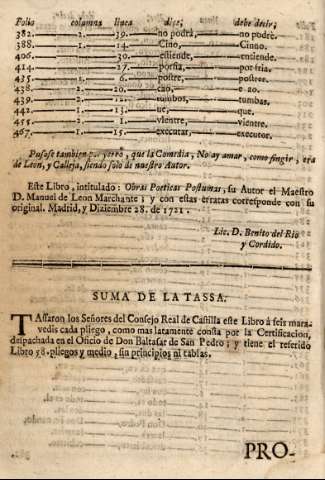 Folio columna linea dize, debe dezir,
382. 1. 39. no podrà, no podrè.
388. 1. 14. Cino, Cinno.
406. 30. estiende, entiende.
414. 27. porsia, por tria.
435. 1. 6. postre, postree.
438. 2. 20. cao, e ao.
439. 2. 12. tumbos, tumbas.
442. 1. 13. ue, que.
455. 2. 1. vientre, vientre.
467. 1. 15. executar, executor.
Pusose tambien por yerro, que la Comedia, No ay amar, como fingir, era
de Leon, y Calleja, siendo solo de nuestro Autor.
Este Libro, intitulado: Obras Poeticas Postumas, su Autor el Maestro
D. Manuel de Leon Marchante; y con estas erratas corresponde con su
original. Madrid, y Diziembre 28. de 1721.
Lic. D. Benito del Rio
y Cordido.
SUMA DE LA TASSA.
TAssaron los Señores del Consejo Real de Castilla este Libro à seis mara-
vedis cada pliego, como mas latamente consta por la Certificacion,
despachada en el Oficio de Don Baltasar de San Pedro; y tiene el referido
Libro 58. pliegos y medio, sin principios ni tablas.
PRO-